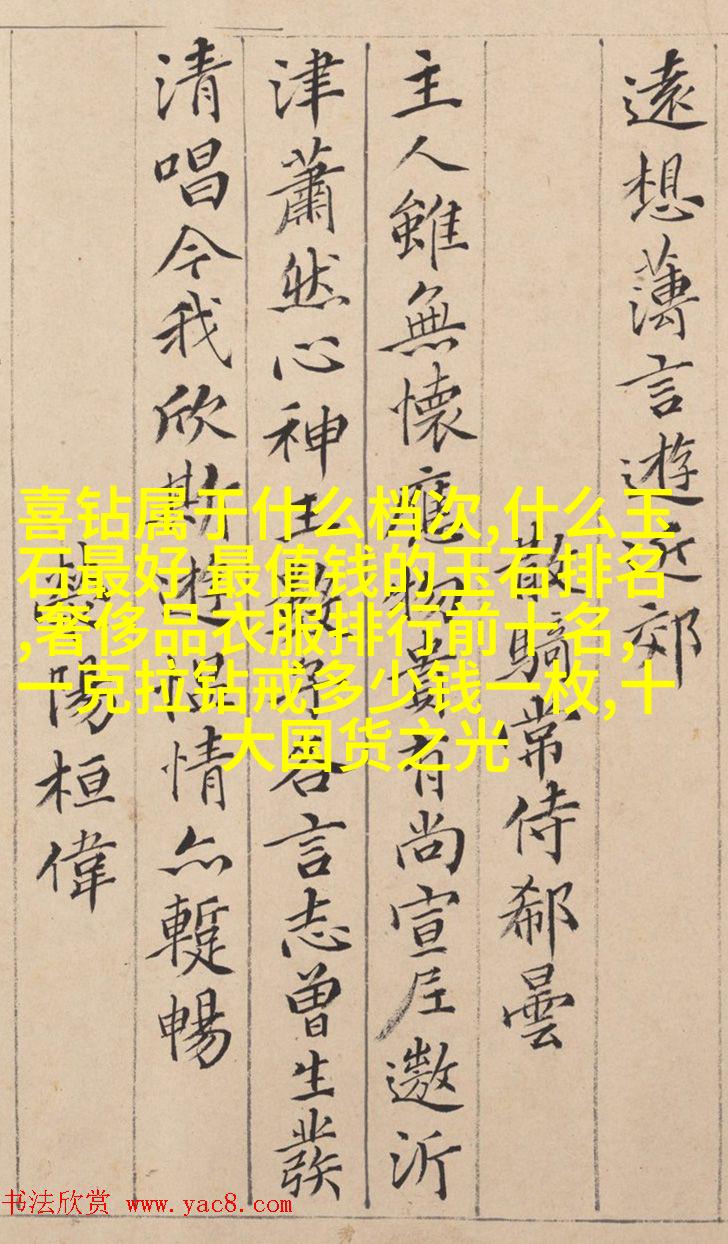 遠想薄言遊近郊
散騎常侍郗曇
主人雖無懷應物貴有尚宣尼遨沂
津蕭然心神王數子各言志曾生發
清唱今我欣斯遊慍情亦蹔暢
陽桓偉
喜钻属于什么档次,什么玉
石最好 最值钱的玉石排名
,奢侈品衣服排行前十名,
一克拉钻戒多少钱一枚,十
大国货之光
书法欣赏 www.yac8.com